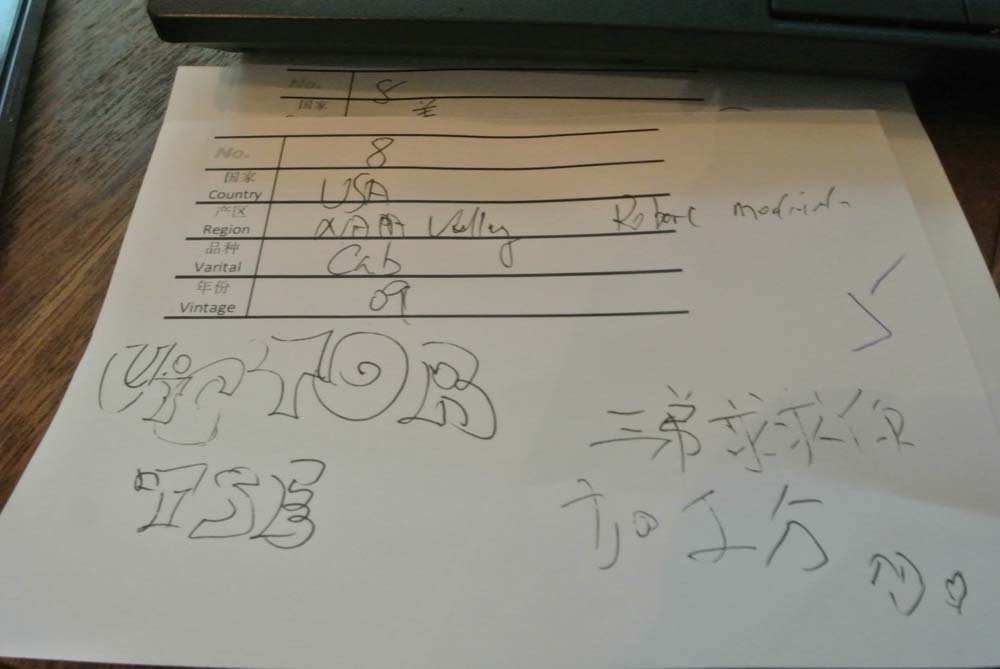 No. 8
国家
No. 8
国家 Country USA
产区 Region NAPA Valley Robert
品种 Varital Cab
年份 Vintage 09
VICTOR
TSE
三弟求求你
加工分